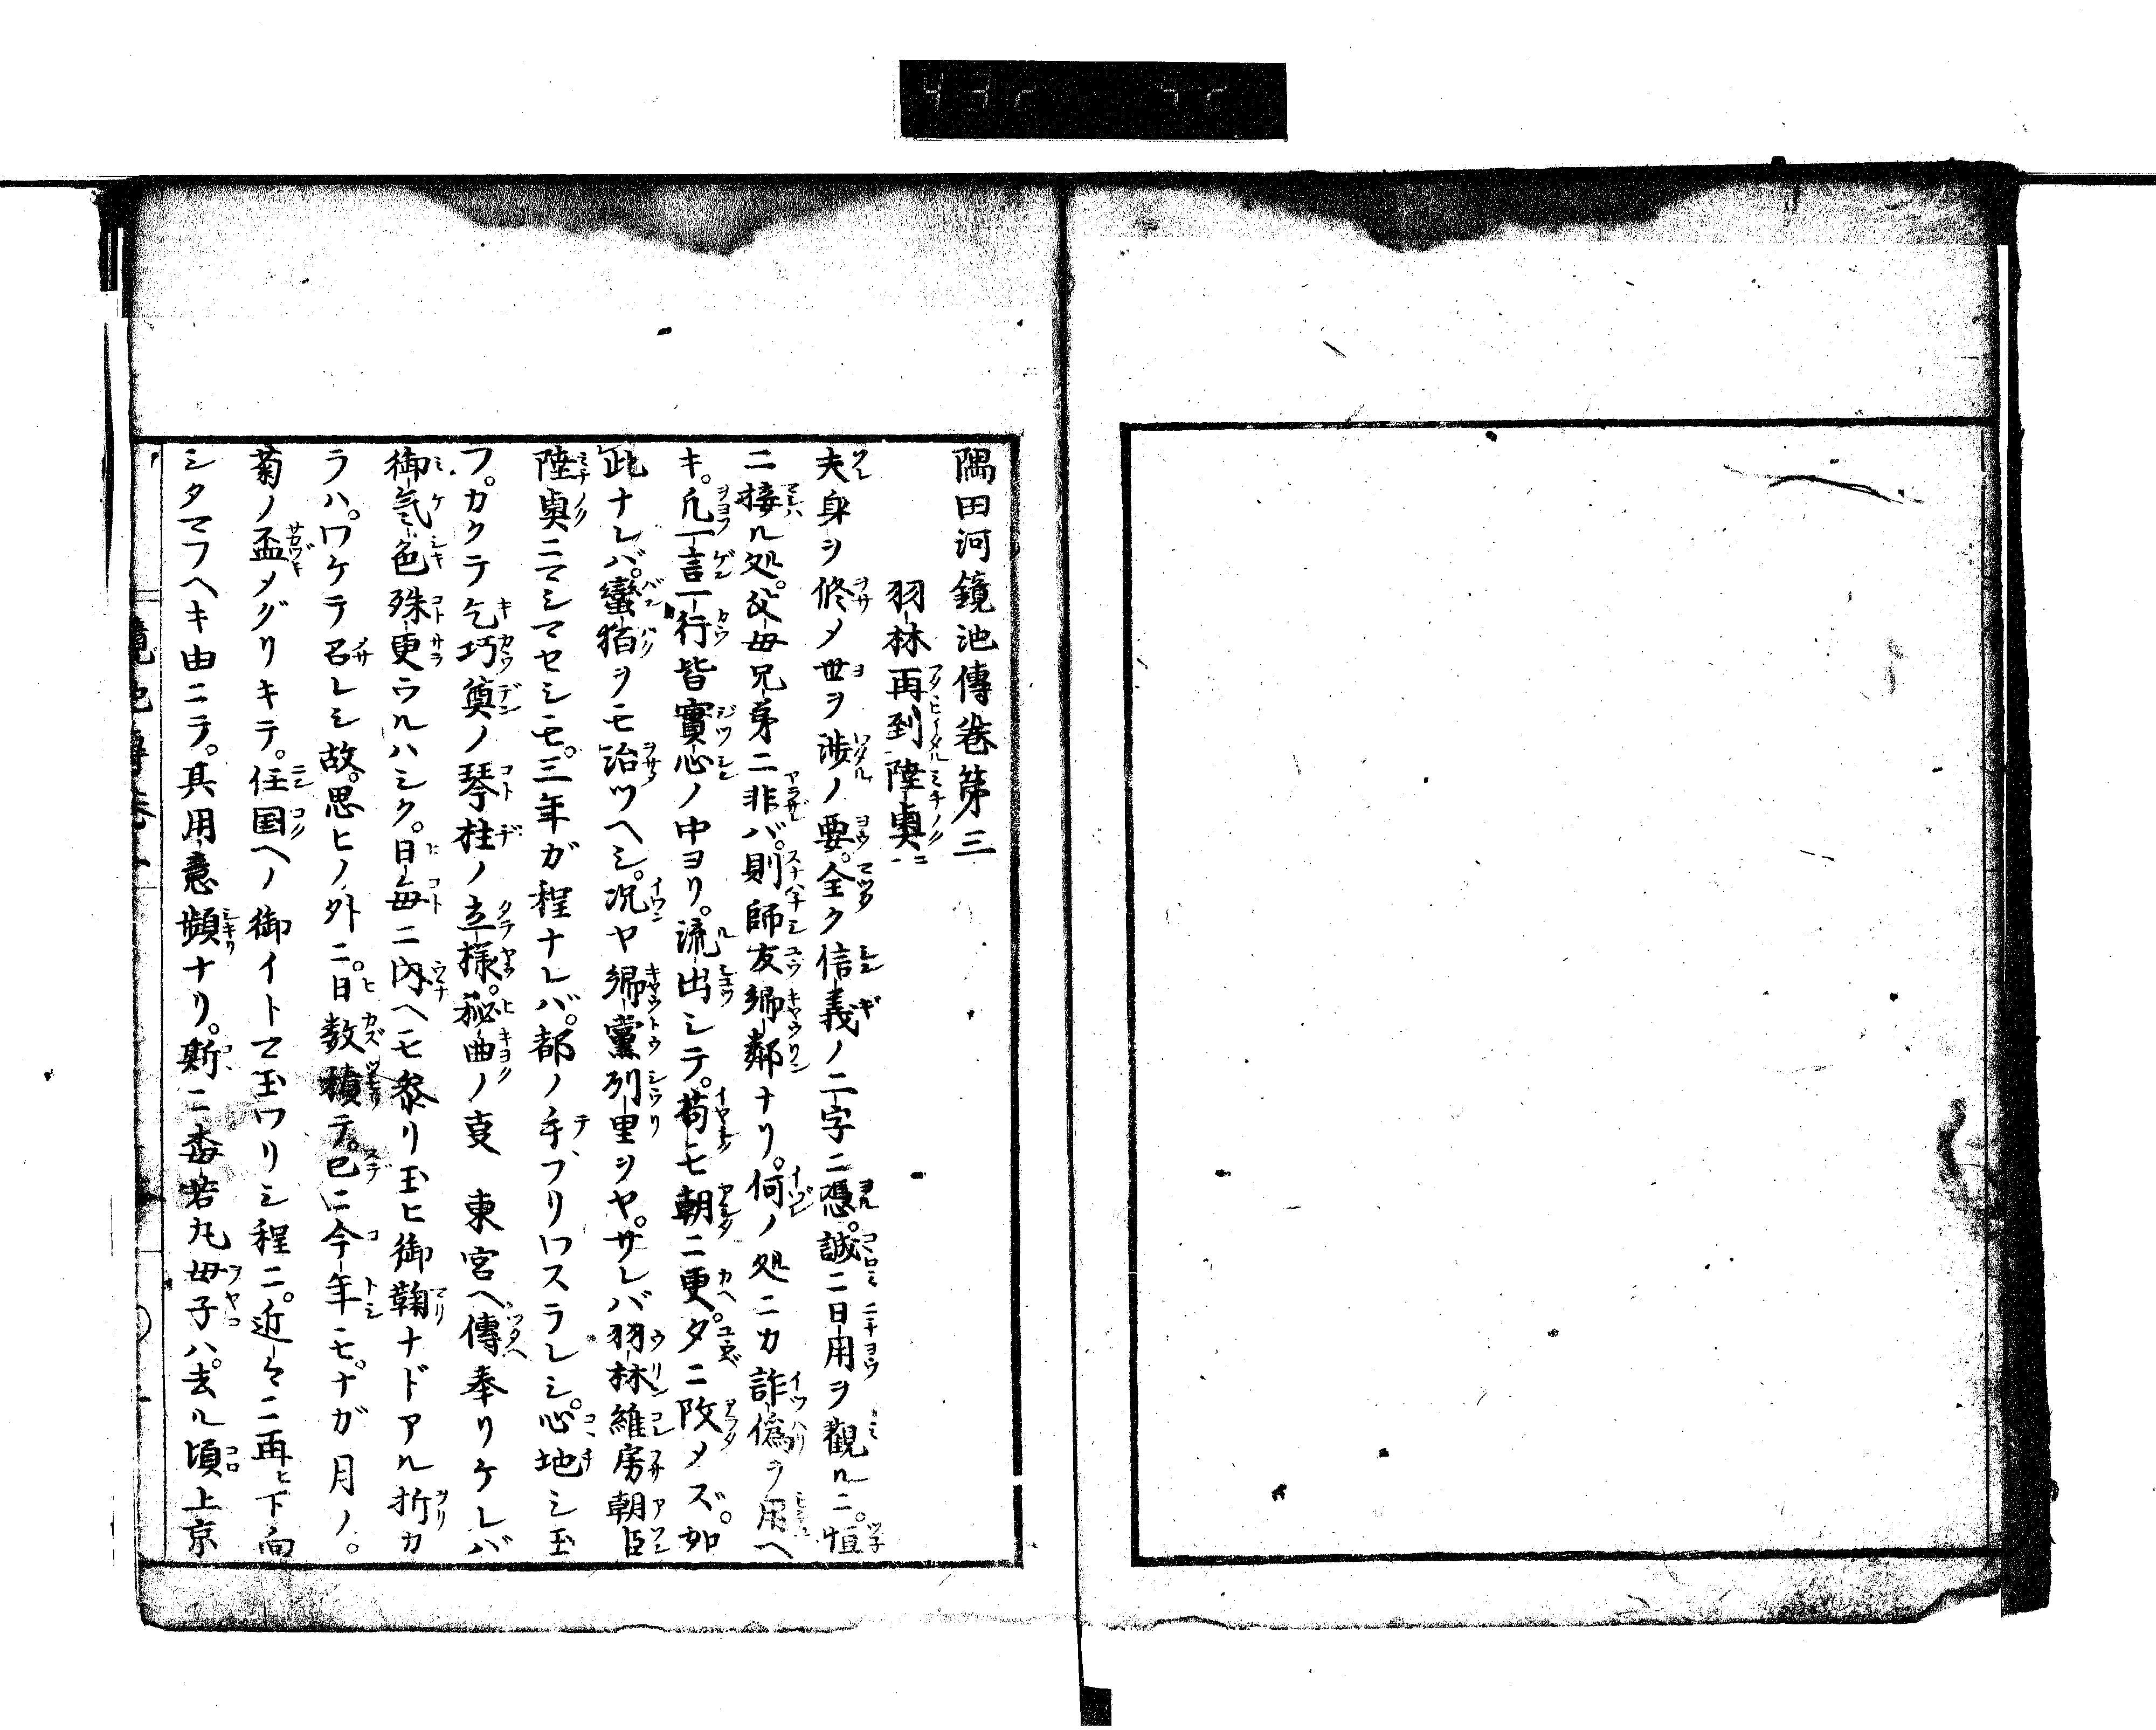 隅田河鏡池傳巻第三
羽林再到陸奥ニ
夫身ヲ修メ世ヲ渉ノ要。全ク信義ノ二字ニ憑。誠ニ日用ヲ觀ルニ。恒
ニ接ル処。父母兄弟ニ非バ。則師友郷鄰ナリ。何ノ処ニカ詐偽ヲ用ヘ
キ。凢一言一行皆實心ノ中ヨリ。流出シテ。苟モ朝ニ更。夕ニ改メズ。如
此ナレバ。蠻貊ヲモ治ツヘシ。况ヤ郷黨列里ヲヤ。サレバ羽林維房朝臣
陸奥ニマシマセシモ。三年ガ程ナレバ。都ノ手フリワスラレシ。心地シ玉
フ。カクテ乞巧奠ノ琴柱ノ立様。秘曲ノ叓 東宮ヘ傳奉リケレバ
御気色殊更ウルハシク。日毎ニ内ヘモ參リ玉ヒ御鞠ナドアル折カ
ラハ。ワケテ召レシ故。思ヒノ外ニ。日数積テ。已ニ今年モ。ナガ月ノ。
菊ノ盃メグリキテ。任国ヘノ御イトマ玉ワリシ程ニ。近々ニ再ヒ下向
シタマフヘキ由ニテ。其用意頻ナリ。斯ニ香若丸母子ハ。去ル頃上京